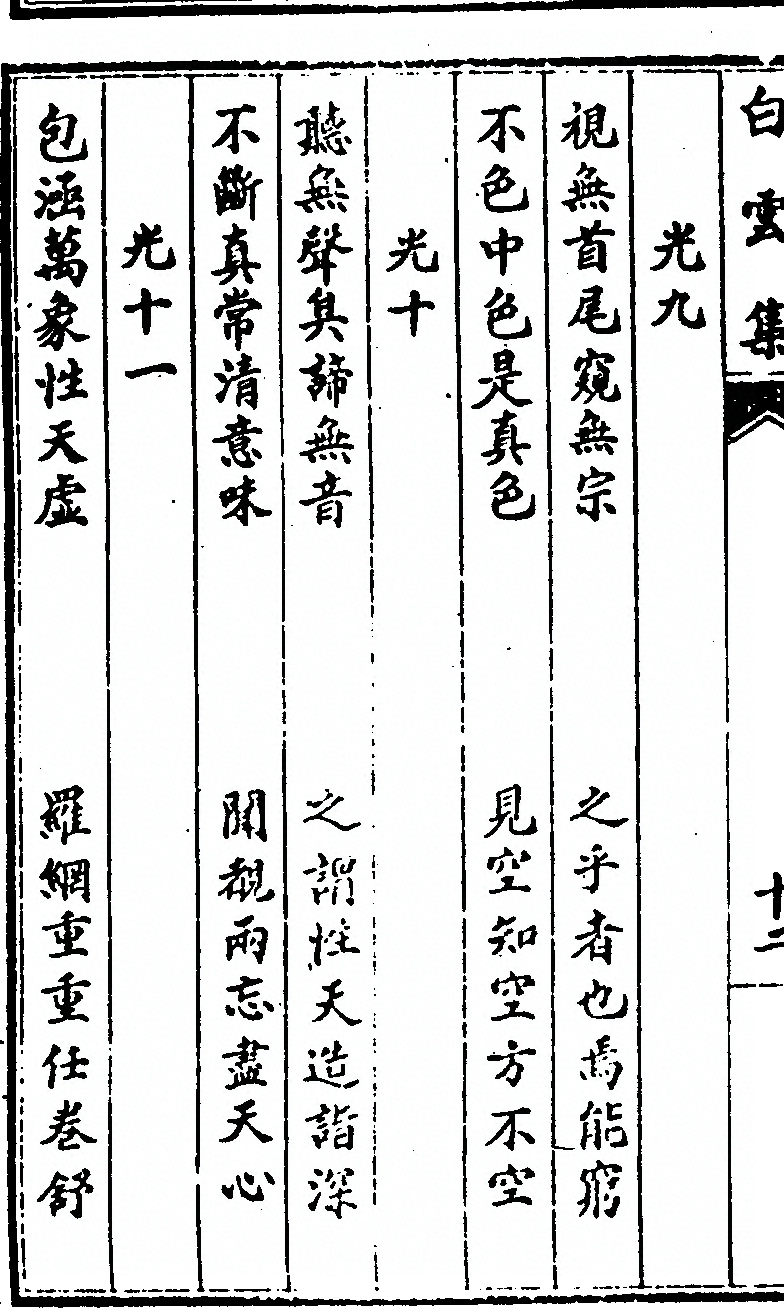 白雲集
十二
光九
視無首尾窺無宗 之乎者也焉能窮
不色中色是真色 見空知空方不空
光十
聽無聲臭諦無音 之謂性天造詣深
不斷真常清意味 聞觀兩忘盡天心
光十一
包涵萬象性天虛 羅網重重任卷舒